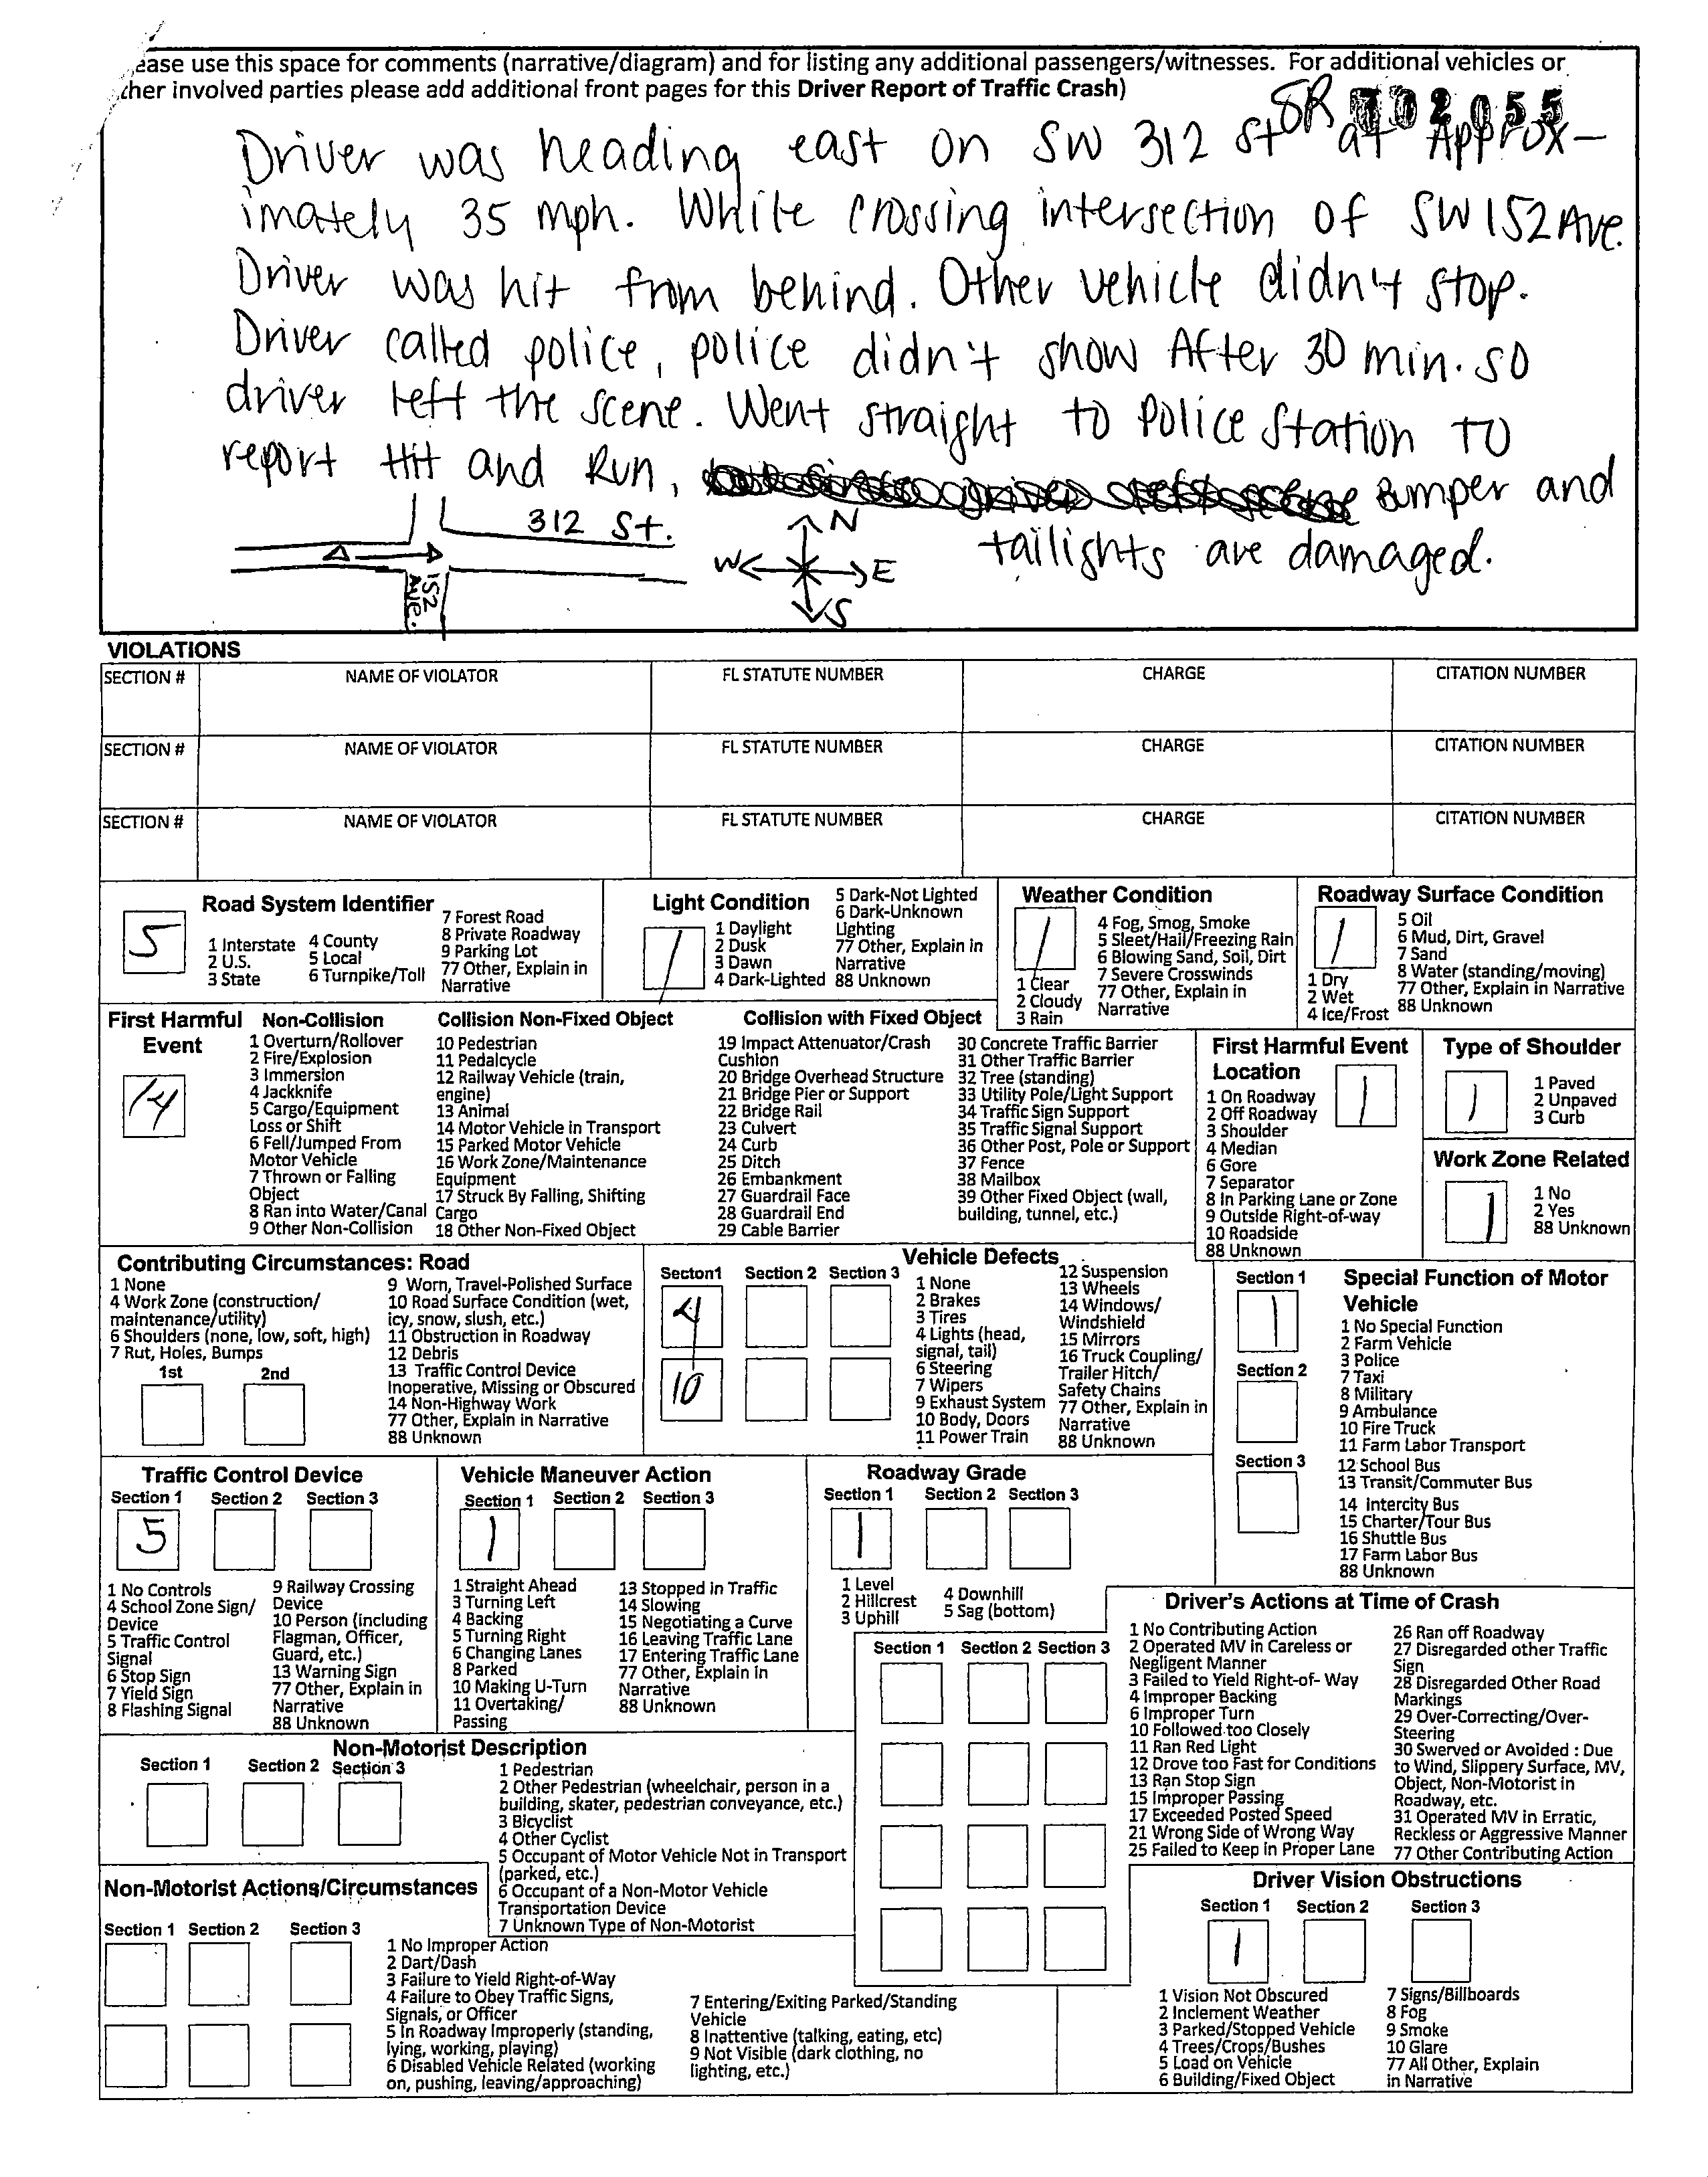 ease use this space for comments (narrative/diagram) and for listing any additional passengers/witnesses. For additional vehicles or
her involved parties please add additional front pages for this Driver Report of Traffic Crash)
SR 702055
Driver was heading east on SW 312 St at Approx-
imately 35 mph. While crossing intersection of SW 152 Ave.
Driver was hit from behind. Other vehicle didn't stop.
Driver called police, police didn't show After 30 min. so
driver left the scene. Went straight to Police Station to
report Hit and Run, Bumper and
tailights are damaged.
312 St.
152 Ave.
N
W E
S
VIOLATIONS
SECTION # NAME OF VIOLATOR FL STATUTE NUMBER CHARGE CITATION NUMBER
SECTION # NAME OF VIOLATOR FL STATUTE NUMBER CHARGE CITATION NUMBER
SECTION # NAME OF VIOLATOR FL STATUTE NUMBER CHARGE CITATION NUMBER
Road System Identifier
5
1 Interstate
2 U.S.
3 State
4 County
5 Local
6 Turnpike/Toll
7 Forest Road
8 Private Roadway
9 Parking Lot
77 Other, Explain in
Narrative
Light Condition
1
1 Daylight
2 Dusk
3 Dawn
4 Dark-Lighted
5 Dark-Not Lighted
6 Dark-Unknown
Lighting
77 Other, Explain in
Narrative
88 Unknown
Weather Condition
1
1 Clear
2 Cloudy
3 Rain
4 Fog, Smog, Smoke
5 Sleet/Hail/Freezing Rain
6 Blowing Sand, Soil, Dirt
7 Severe Crosswinds
77 Other, Explain in
Narrative
Roadway Surface Condition
1
1 Dry
2 Wet
4 Ice/Frost
5 Oil
6 Mud, Dirt, Gravel
7 Sand
8 Water (standing/moving)
77 Other, Explain in Narrative
88 Unknown
First Harmful
Event
14
Non-Collision
1 Overturn/Rollover
2 Fire/Explosion
3 Immersion
4 Jackknife
5 Cargo/Equipment
Loss or Shift
6 Fell/Jumped From
Motor Vehicle
7 Thrown or Falling
Object
8 Ran into Water/Canal
9 Other Non-Collision
Collision Non-Fixed Object
10 Pedestrian
11 Pedalcycle
12 Railway Vehicle (train,
engine)
13 Animal
14 Motor Vehicle in Transport
15 Parked Motor Vehicle
16 Work Zone/Maintenance
Equipment
17 Struck By Falling, Shifting
Cargo
18 Other Non-Fixed Object
Collision with Fixed Object
19 Impact Attenuator/Crash
Cushion
20 Bridge Overhead Structure
21 Bridge Pier or Support
22 Bridge Rail
23 Culvert
24 Curb
25 Ditch
26 Embankment
27 Guardrail Face
28 Guardrail End
29 Cable Barrier
30 Concrete Traffic Barrier
31 Other Traffic Barrier
32 Tree (standing)
33 Utility Pole/Light Support
34 Traffic Sign Support
35 Traffic Signal Support
36 Other Post, Pole or Support
37 Fence
38 Mailbox
39 Other Fixed Object (wall,
building, tunnel, etc.)
First Harmful Event
Location
1
1 On Roadway
2 Off Roadway
3 Shoulder
4 Median
6 Gore
7 Separator
8 In Parking Lane or Zone
9 Outside Right-of-way
10 Roadside
88 Unknown
Type of Shoulder
1
1 Paved
2 Unpaved
3 Curb
Work Zone Related
1
1 No
2 Yes
88 Unknown
Contributing Circumstances: Road
1 None
4 Work Zone (construction/
maintenance/utility)
6 Shoulders (none, low, soft, high)
7 Rut, Holes, Bumps
1st 2nd
9 Worn, Travel-Polished Surface
10 Road Surface Condition (wet,
icy, snow, slush, etc.)
11 Obstruction in Roadway
12 Debris
13 Traffic Control Device
Inoperative, Missing or Obscured
14 Non-Highway Work
77 Other, Explain in Narrative
88 Unknown
Vehicle Defects
Secton1 Section 2 Section 3
4
10
1 None
2 Brakes
3 Tires
4 Lights (head,
signal, tail)
6 Steering
7 Wipers
9 Exhaust System
10 Body, Doors
11 Power Train
12 Suspension
13 Wheels
14 Windows/
Windshield
15 Mirrors
16 Truck Coupling/
Trailer Hitch/
Safety Chains
77 Other, Explain in
Narrative
88 Unknown
Special Function of Motor
Vehicle
Section 1
1
Section 2
Section 3
1 No Special Function
2 Farm Vehicle
3 Police
7 Taxi
8 Military
9 Ambulance
10 Fire Truck
11 Farm Labor Transport
12 School Bus
13 Transit/Commuter Bus
14 Intercity Bus
15 Charter/Tour Bus
16 Shuttle Bus
17 Farm Labor Bus
88 Unknown
Traffic Control Device
Section 1 Section 2 Section 3
5
1 No Controls
4 School Zone Sign/
Device
5 Traffic Control
Signal
6 Stop Sign
7 Yield Sign
8 Flashing Signal
9 Railway Crossing
Device
10 Person (including
Flagman, Officer,
Guard, etc.)
13 Warning Sign
77 Other, Explain in
Narrative
88 Unknown
Vehicle Maneuver Action
Section 1 Section 2 Section 3
1
1 Straight Ahead
3 Turning Left
4 Backing
5 Turning Right
6 Changing Lanes
8 Parked
10 Making U-Turn
11 Overtaking/
Passing
13 Stopped in Traffic
14 Slowing
15 Negotiating a Curve
16 Leaving Traffic Lane
17 Entering Traffic Lane
77 Other, Explain in
Narrative
88 Unknown
Roadway Grade
Section 1 Section 2 Section 3
1
1 Level
2 Hillcrest
3 Uphill
4 Downhill
5 Sag (bottom)
Driver's Actions at Time of Crash
Section 1 Section 2 Section 3
1 No Contributing Action
2 Operated MV in Careless or
Negligent Manner
3 Failed to Yield Right-of- Way
4 Improper Backing
6 Improper Turn
10 Followed too Closely
11 Ran Red Light
12 Drove too Fast for Conditions
13 Ran Stop Sign
15 Improper Passing
17 Exceeded Posted Speed
21 Wrong Side of Wrong Way
25 Failed to Keep in Proper Lane
26 Ran off Roadway
27 Disregarded other Traffic
Sign
28 Disregarded Other Road
Markings
29 Over-Correcting/Over-
Steering
30 Swerved or Avoided : Due
to Wind, Slippery Surface, MV,
Object, Non-Motorist in
Roadway, etc.
31 Operated MV in Erratic,
Reckless or Aggressive Manner
77 Other Contributing Action
Non-Motorist Description
Section 1 Section 2 Section 3
1 Pedestrian
2 Other Pedestrian (wheelchair, person in a
building, skater, pedestrian conveyance, etc.)
3 Bicyclist
4 Other Cyclist
5 Occupant of Motor Vehicle Not in Transport
(parked, etc.)
6 Occupant of a Non-Motor Vehicle
Transportation Device
7 Unknown Type of Non-Motorist
Non-Motorist Actions/Circumstances
Section 1 Section 2 Section 3
1 No Improper Action
2 Dart/Dash
3 Failure to Yield Right-of-Way
4 Failure to Obey Traffic Signs,
Signals, or Officer
5 In Roadway Improperly (standing,
lying, working, playing)
6 Disabled Vehicle Related (working
on, pushing, leaving/approaching)
7 Entering/Exiting Parked/Standing
Vehicle
8 Inattentive (talking, eating, etc)
9 Not Visible (dark clothing, no
lighting, etc.)
Driver Vision Obstructions
Section 1 Section 2 Section 3
1
1 Vision Not Obscured
2 Inclement Weather
3 Parked/Stopped Vehicle
4 Trees/Crops/Bushes
5 Load on Vehicle
6 Building/Fixed Object
7 Signs/Billboards
8 Fog
9 Smoke
10 Glare
77 All Other, Explain
in Narrative